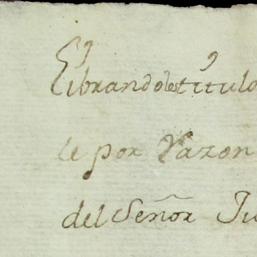 Librandole titulo
le por Razon
del Señor Ju